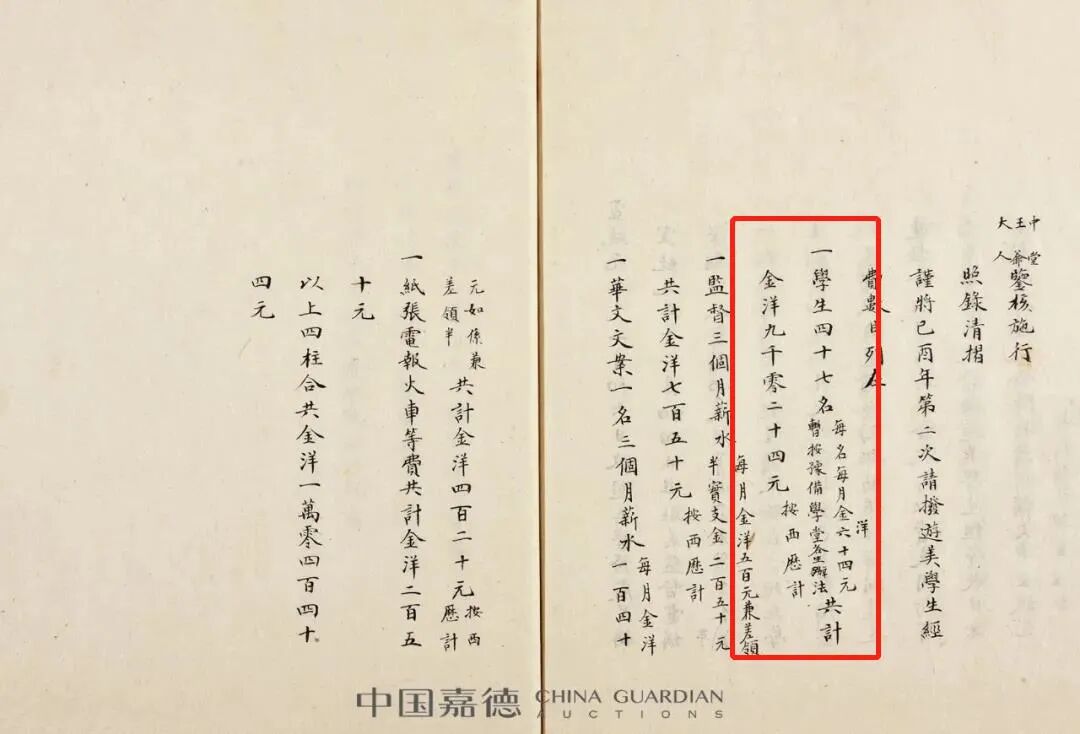 中堂
王爺
大人
鑒核施行
照錄清摺
謹將己酉年第二次請撥遊美學生經
費數目列左
一學生四十七名每名每月金洋六十四元暫按豫備學堂學生辦法共計
金洋九千零二十四元按西歷計
一監督三個月薪水每月金洋五百元兼差領半實支金二百五十元
共計金洋七百五十元按西歷計
一華文文案一名三個月薪水每月金洋一百四十
元如係兼差領半共計金洋四百二十元按西歷計
一紙張電報火車等費共計金洋二百五
十元
以上四柱合共金洋一萬零四百四十
四元
中国嘉德 CHINA GUARDIAN AUCTIONS